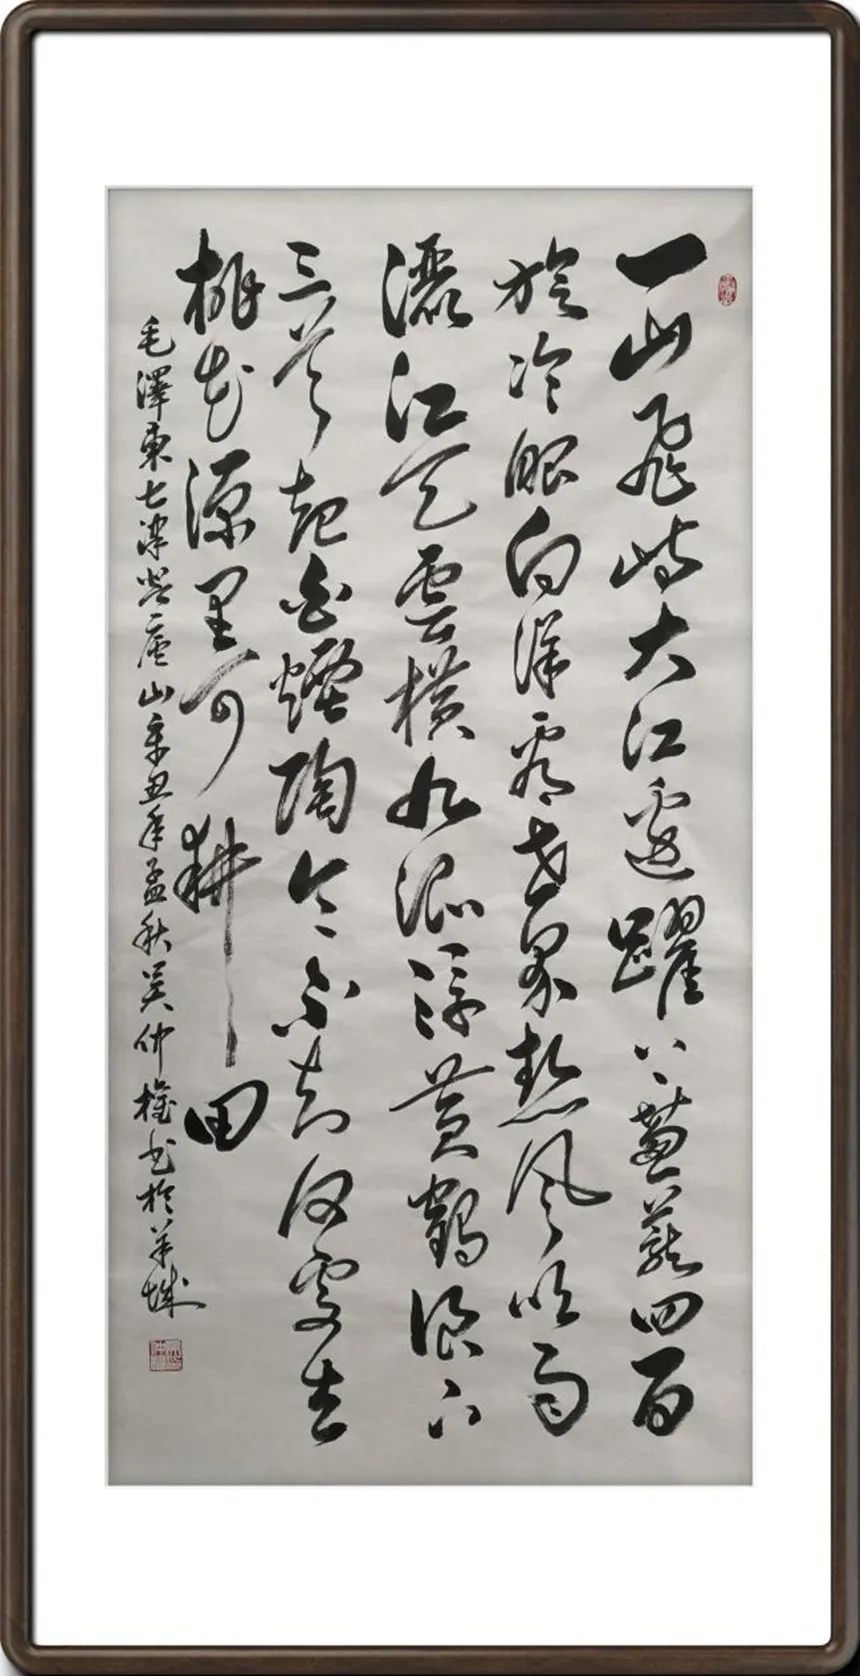 一山飛峙大江邊躍上蔥蘢四百
旋冷眼向洋看世界熱風吹雨
灑江天雲橫九派浮黃鶴浪下
三吳起白煙陶令不知何處去
桃花源里可耕田
毛澤東七律登廬山辛丑年孟秋吳仲書於羊城